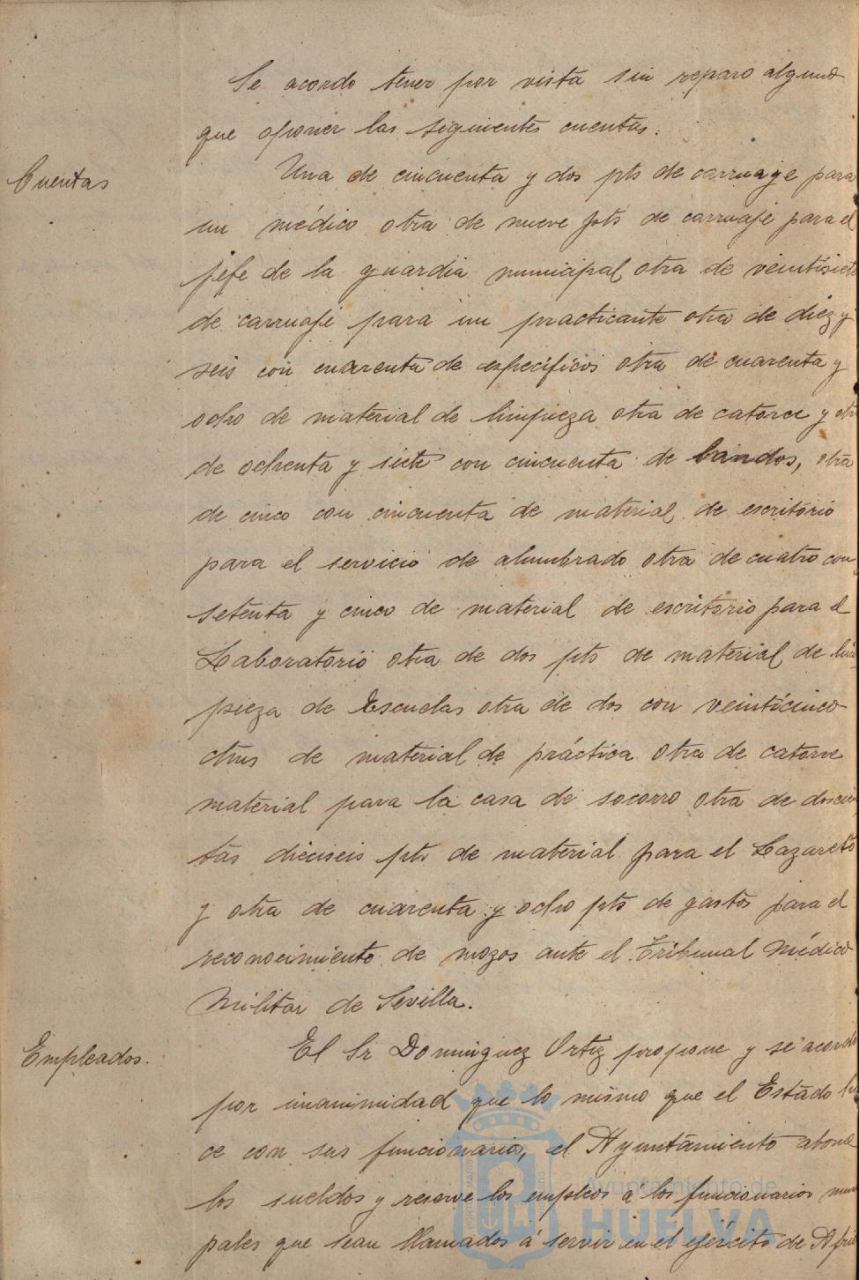 Se acordo tener por vista sin reparo alguno
que oponer las siguientes cuentas.
Cuentas
Una de cincuenta y dos pts de carruaje para
un médico otra de nueve pts de carruaje para el
jefe de la guardia municipal otra de veintisiete
de carruaje para un practicante otra de diez y
seis con cuarenta de específicos otra de cuarenta y
ocho de material de limpieza otra de catorce y otra
de ochenta y siete con cincuenta de bandos, otra
de cinco con cincuenta de material de escritorio
para el servicio de alumbrado otra de cuatro con
setenta y cinco de material de escritorio para el
Laboratorio otra de dos pts de material de lim
pieza de Escuelas otra de dos con veinticinco
ctms de material de práctica otra de catorce
material para la casa de socorro otra de doscien
tas dieciseis pts de material para el Lazareto
y otra de cuarenta y ocho pts de gastos para el
reconocimiento de mozos ante el Tribunal Médico
Militar de Sevilla.
Empleados.
El Sr Dominguez Ortiz propone y se acordo
por unanimidad que lo mismo que el Estado ha
ce con sus funcionarios, el Ayuntamiento abone
los sueldos y reserve los empleos a los funcionarios muni
pales que sean llamados á servir en el ejército de Afri
Ayuntamiento de
HUELVA